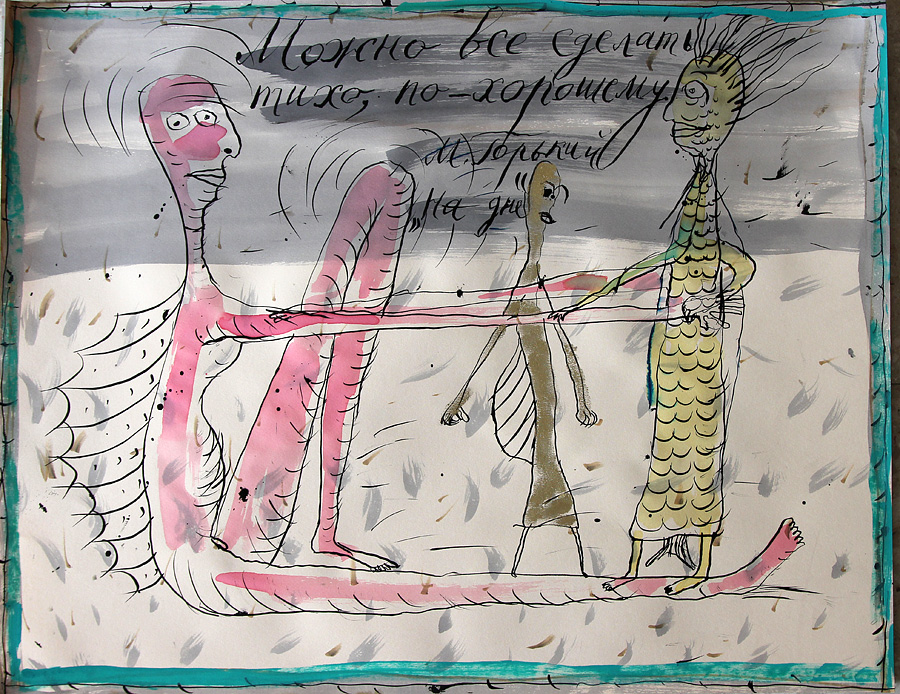 Можно все сделать
тихо, по-хорошему.
М. Горький
„На дне"